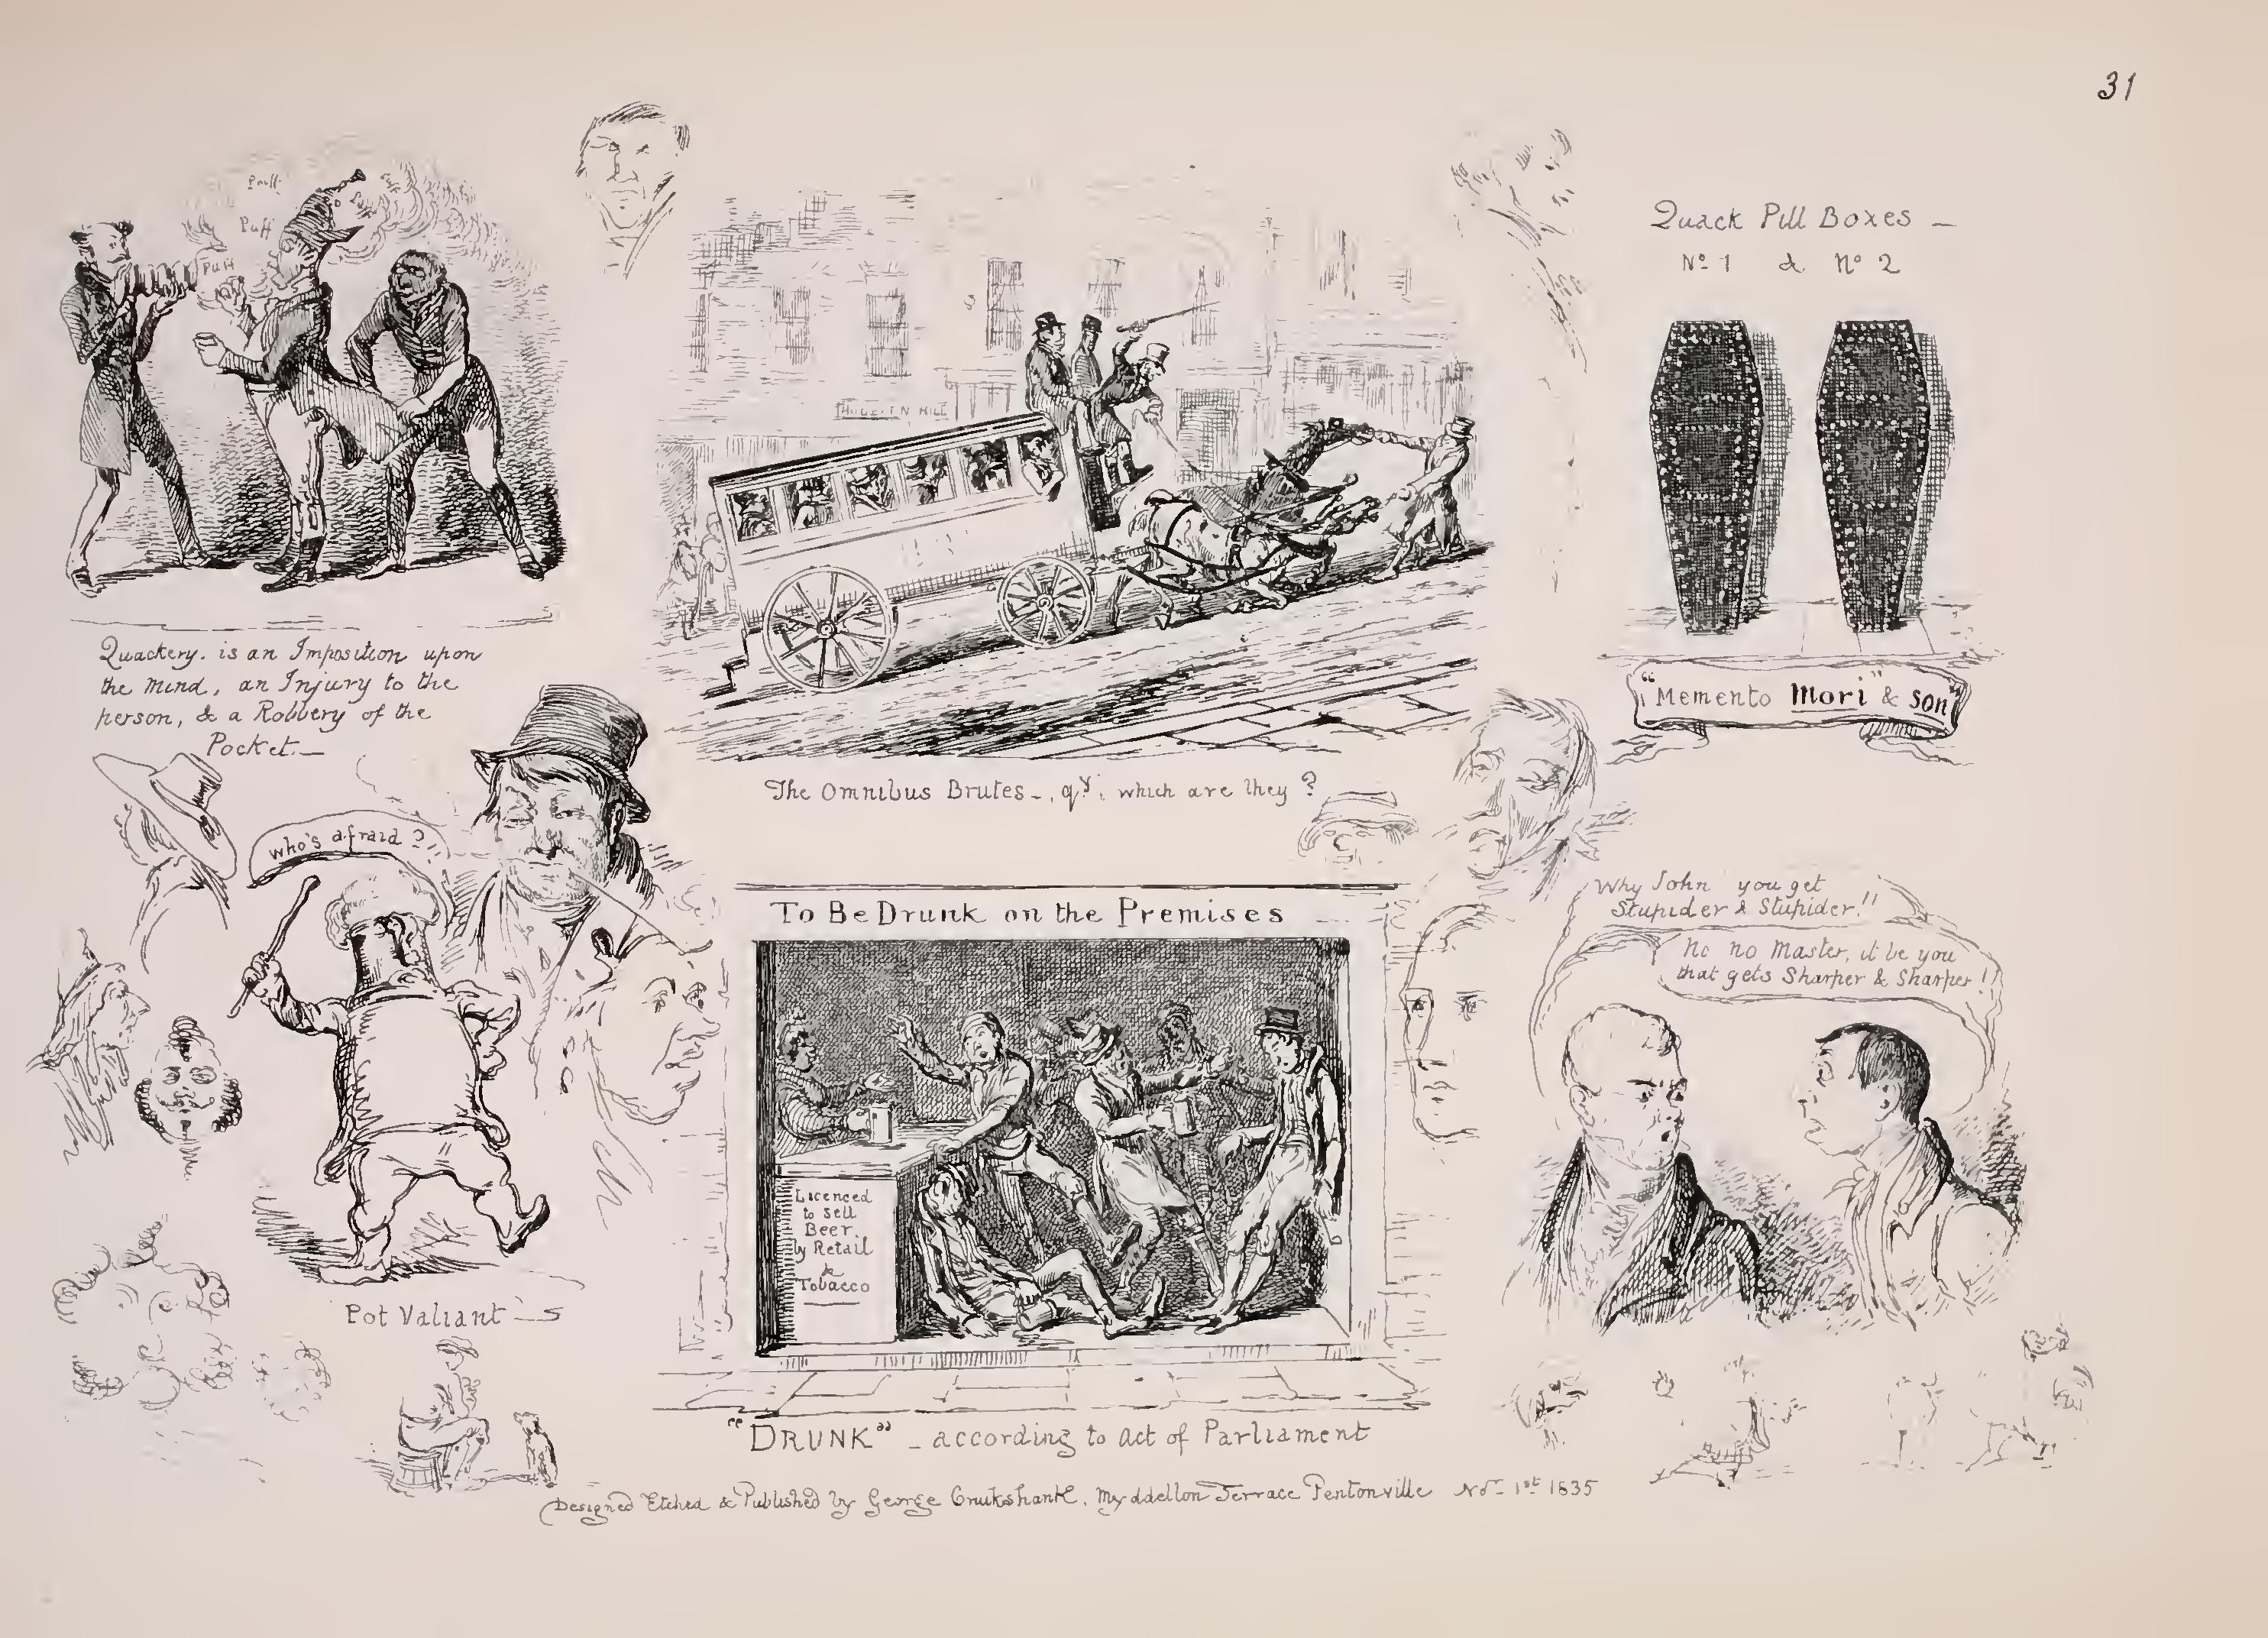 31
Puff
Puff
Puff
Quackery. is an Imposition upon
the mind, an Injury to the
person, & a Robbery of the
Pocket._
HILL
The Omnibus Brutes_, qy; which are they?
Quack Pill Boxes _
No 1 & No 2
"Memento Mori" & son
who's afraid?
Pot Valiant
To Be Drunk on the Premises
Licenced
to sell
Beer
by Retail
&
Tobacco
"DRUNK" _ according to act of Parliament
Why John you get
Stupider & Stupider!!
No no Master, it be you
that gets Sharper & Sharper!!
Designed Etched & Published by George Cruikshank. Myddellon Terrace Pentonville Novr 1st 1835